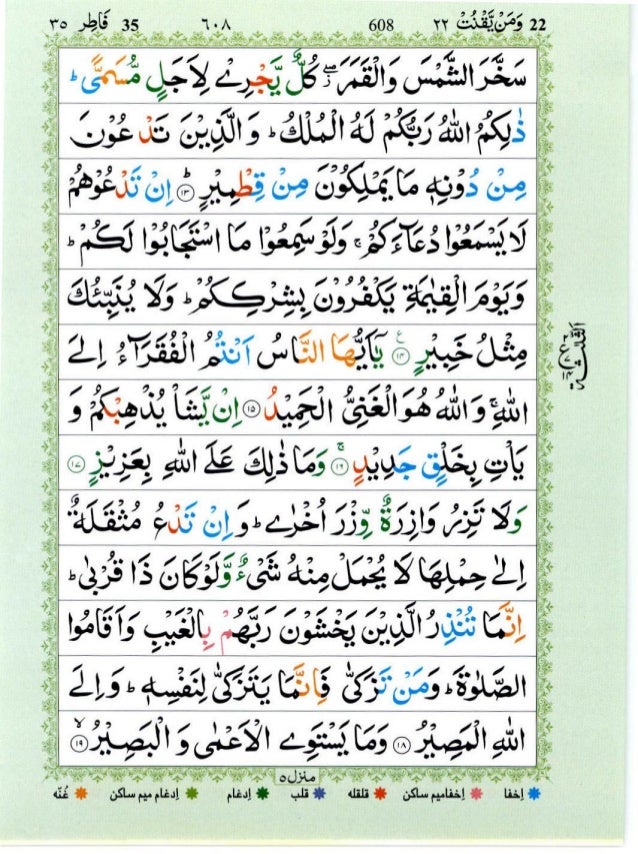 22 وَمَنْ يَّقْنُتْ ٢٢ 608 ٦٠٨ 35 فَاطِر ٣٥
سَخَّرَ الشَّمْسَ وَالْقَمَرَ ۖز كُلٌّ يَّجْرِيْ لِاَجَلٍ مُّسَمًّى ؕ
ذٰلِكُمُ اللّٰهُ رَبُّكُمْ لَهُ الْمُلْكُ ؕ وَ الَّذِيْنَ تَدْعُوْنَ
مِنْ دُوْنِهٖ مَا يَمْلِكُوْنَ مِنْ قِطْمِيْرٍ ؕ ۱۳ اِنْ تَدْعُوْهُمْ
لَا يَسْمَعُوْا دُعَآءَكُمْ ۚ وَلَوْ سَمِعُوْا مَا اسْتَجَابُوْا لَكُمْ ؕ
وَيَوْمَ الْقِيٰمَةِ يَكْفُرُوْنَ بِشِرْكِكُمْ ؕ وَلَا يُنَبِّئُكَ
مِثْلُ خَبِيْرٍ ۱۴ ع يٰۤاَيُّهَا النَّاسُ اَنْتُمُ الْفُقَرَآءُ اِلَى
اللّٰهِ ۚ وَاللّٰهُ هُوَ الْغَنِيُّ الْحَمِيْدُ ۱۵ اِنْ يَّشَاْ يُذْهِبْكُمْ وَ
يَاْتِ بِخَلْقٍ جَدِيْدٍ ۚ ۱۶ وَمَا ذٰلِكَ عَلَى اللّٰهِ بِعَزِيْزٍ ۱۷
وَلَا تَزِرُ وَازِرَةٌ وِّزْرَ اُخْرٰى ؕ وَاِنْ تَدْعُ مُثْقَلَةٌ
اِلٰى حِمْلِهَا لَا يُحْمَلْ مِنْهُ شَيْءٌ وَّلَوْ كَانَ ذَا قُرْبٰى ؕ
اِنَّمَا تُنْذِرُ الَّذِيْنَ يَخْشَوْنَ رَبَّهُمْ بِالْغَيْبِ وَاَقَامُوا
الصَّلٰوةَ ؕ وَمَنْ تَزَكّٰى فَاِنَّمَا يَتَزَكّٰى لِنَفْسِهٖ ؕ وَاِلَى
اللّٰهِ الْمَصِيْرُ ۱۸ وَمَا يَسْتَوِي الْاَعْمٰى وَ الْبَصِيْرُ ۙ ۱۹
منزل ٥
اِخفا اِخفامیم ساکن قلقله قلب اِدغام اِدغام میم ساکن غُنّه